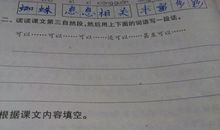 蜘蛛 息息相关
二、读读课文第三自然段,然后用上下面的词语写一段话。
可以……可以……可以……还可以……甚至可以……
根据课文内容填空。